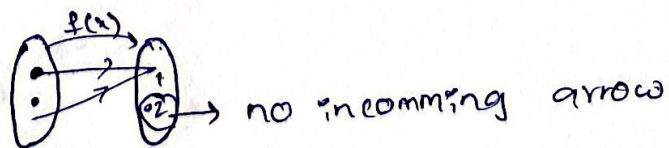 f(x)
no incomming arrow